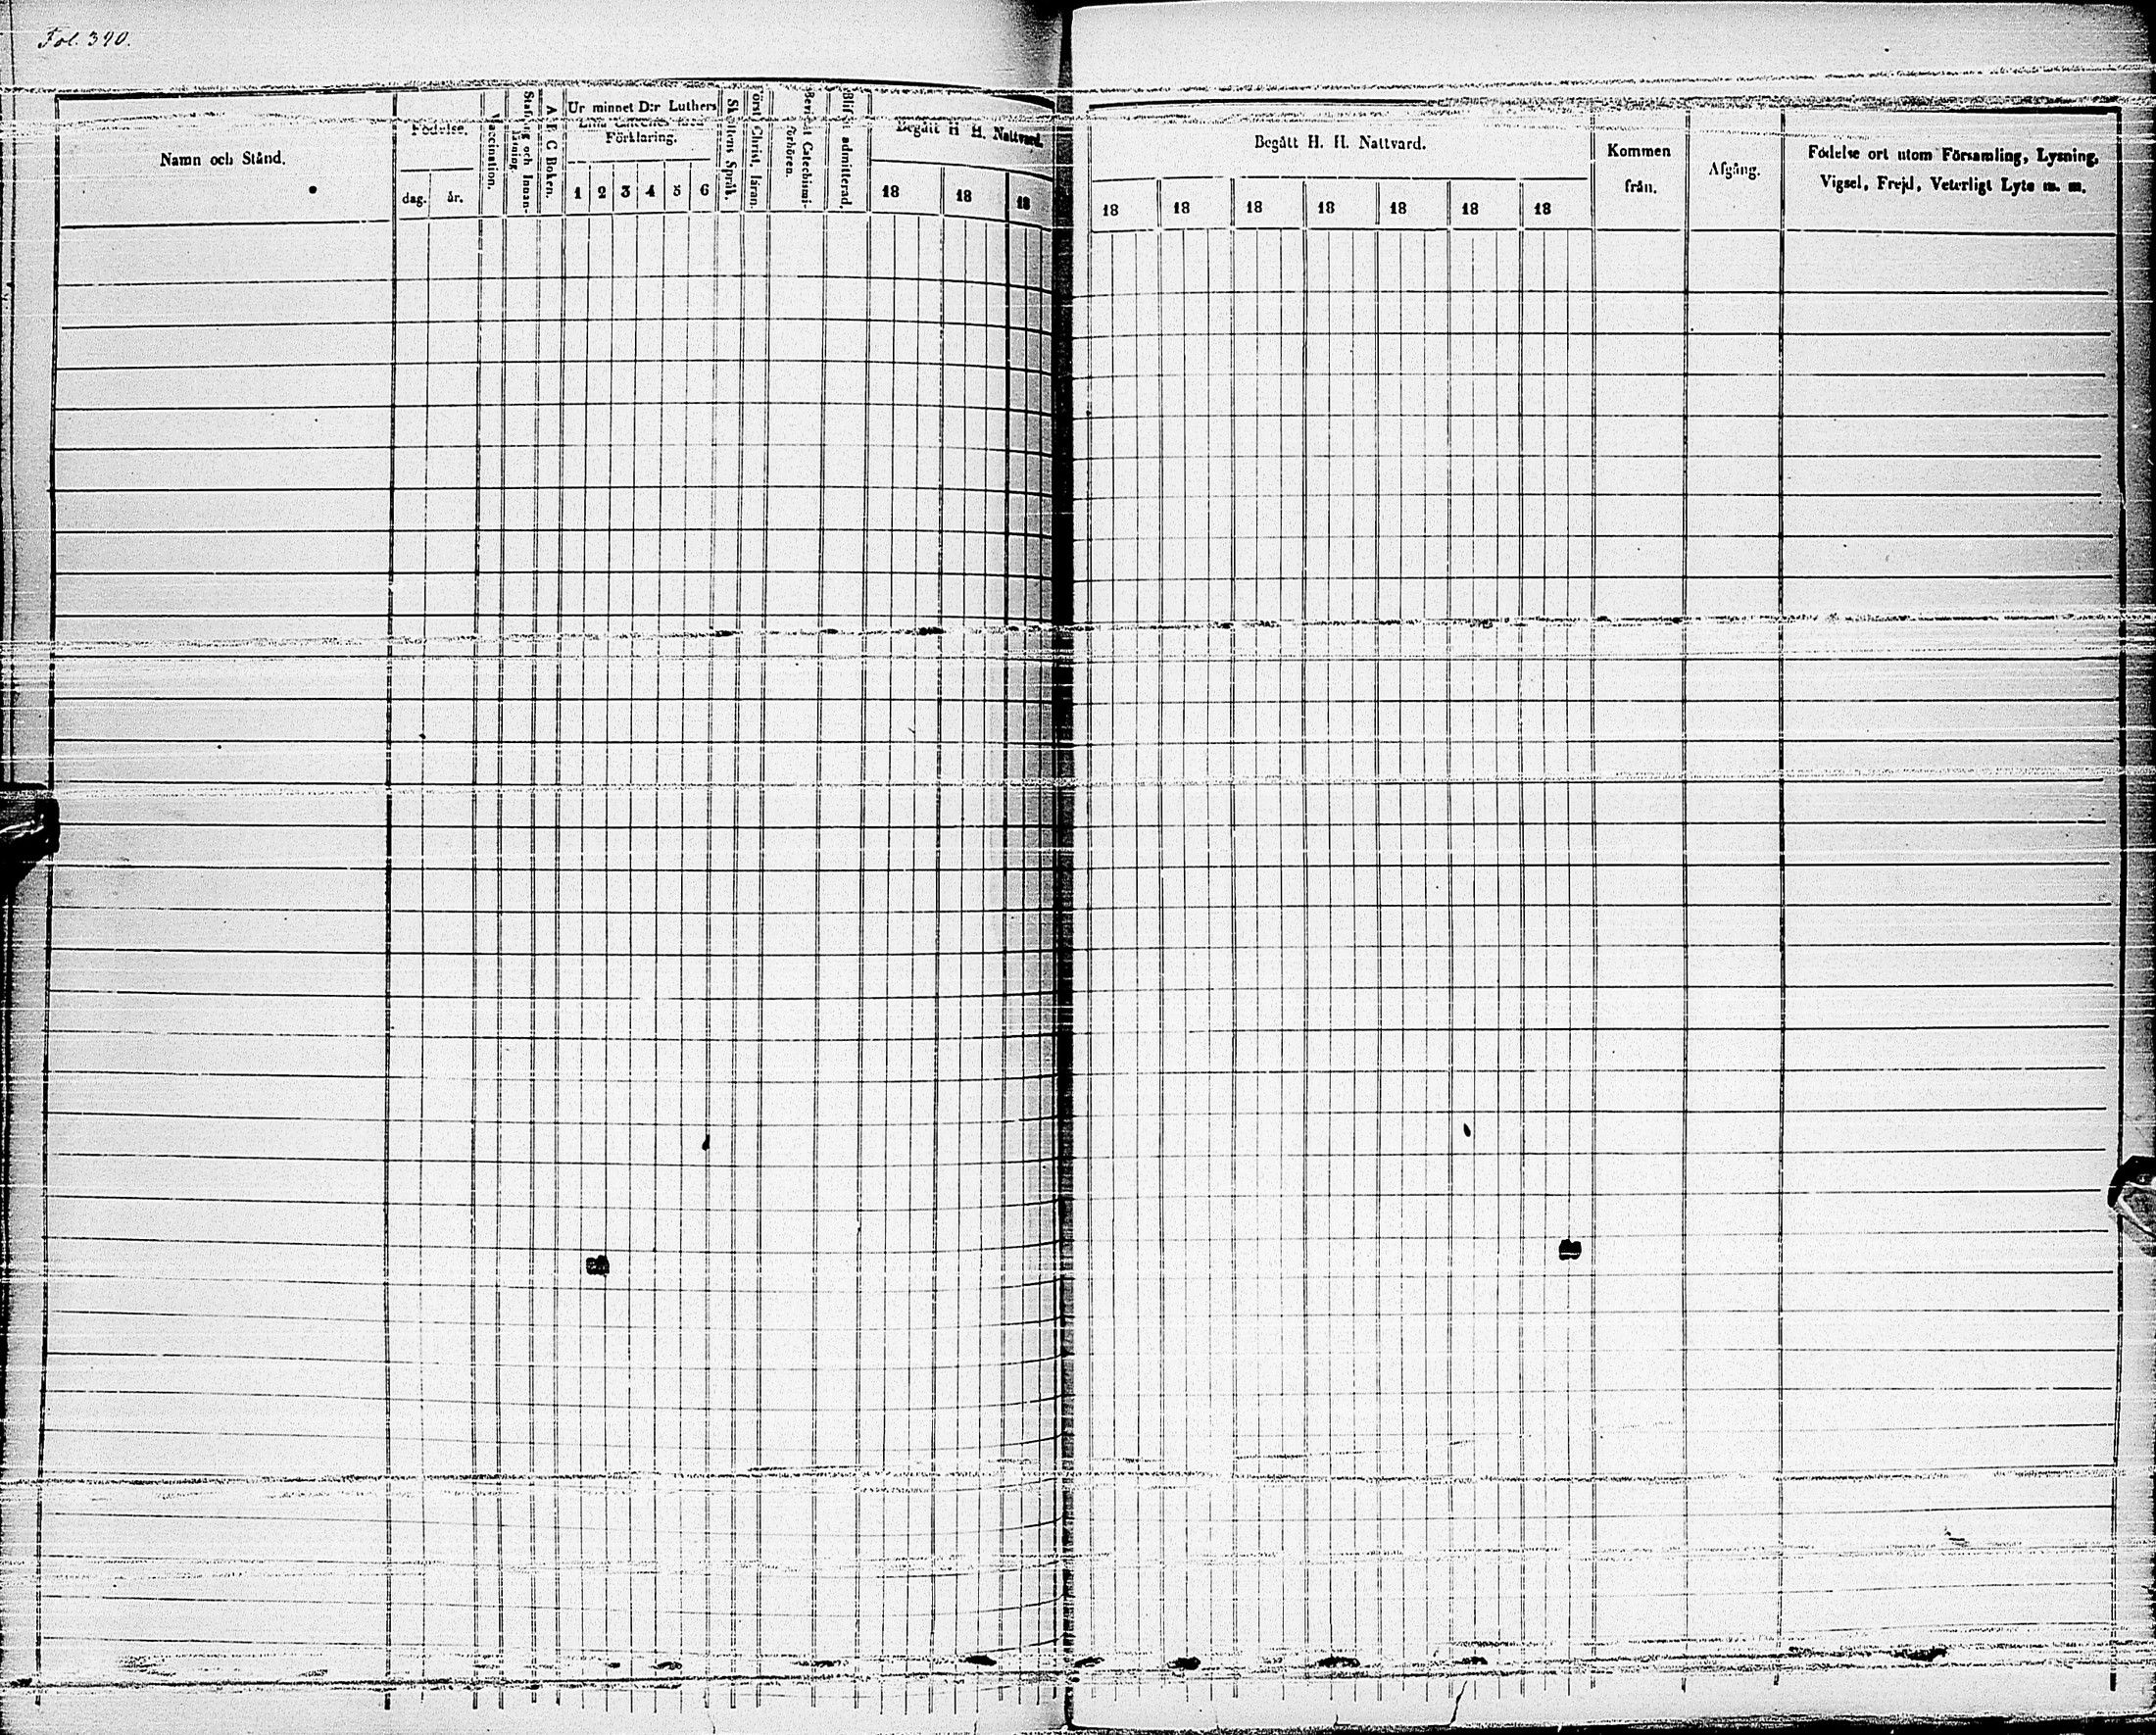 Fol. 390.
Namn och Stånd.
Födelse.
dag.
år.
Vaccination.
Stafning och Innan-
läsning
A B C Boken.
Ur minnet D:r Luthers
Förklaring.
1 2 3 4 5 6
Skriftens Språk.
Först. Christ. läran.
Bevistat Catechismi-
förhören.
Blifvit admitterad.
Begått H. H. Nattvard.
18 18 18
Begått H. H. Nattvard.
18 18 18 18 18 18 18
Kommen
från.
Afgång.
Födelse ort utom Församling, Lysning,
Vigsel, Frejd, Veterligt Lyte m. m.